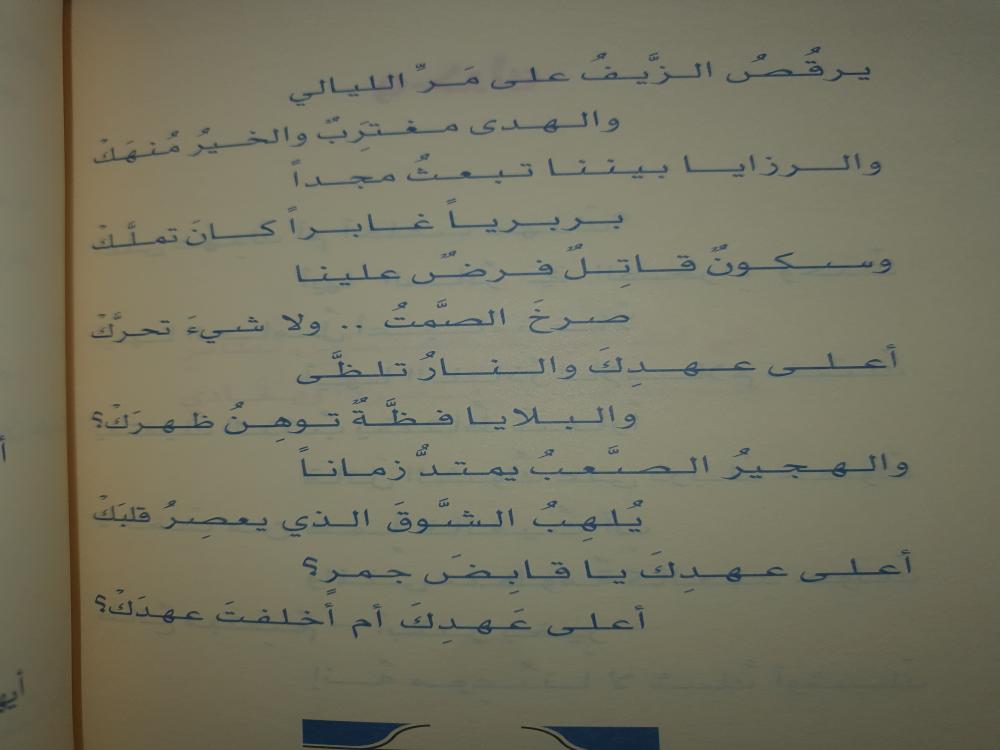 يرقُصُ الزَّيفُ على مَرِّ الليالي
والهدى مغترِبٌ والخيرُ مُنهَكْ
والرزايا بيننا تبعثُ مجداً
بربرياً غابراً كانَ تملَّكْ
وسكونٌ قاتِلٌ فرضٌ علينا
صرخَ الصَّمتُ .. ولا شيءَ تحرَّكْ
أعلى عهدِكَ والنارُ تلظَّى
والبلايا فظَّةٌ توهِنُ ظهرَكْ؟
والهجيرُ الصَّعبُ يمتدُّ زماناً
يُلهِبُ الشَّوقَ الذي يعصِرُ قلبَكْ
أعلى عهدِكَ يا قابِضَ جمرٍ؟
أعلى عَهدِكَ أم أخلفتَ عهدَكْ؟